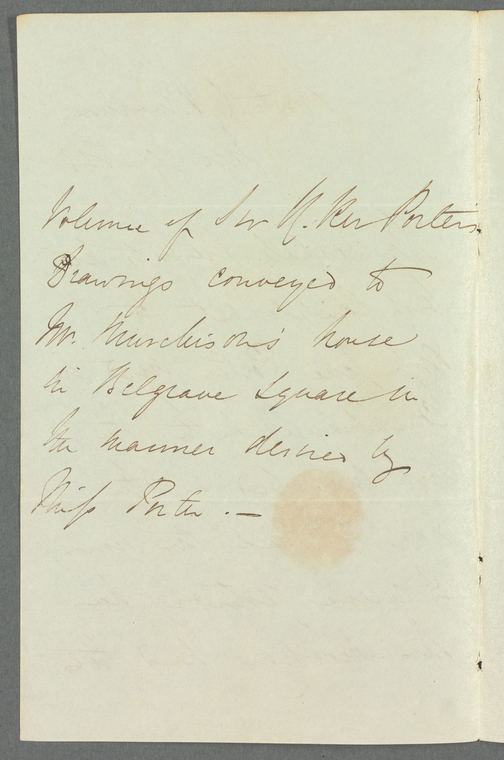 Volume of Sir R. Ker Porter's
Drawings conveyed to
Mr. Murchison's house
in Belgrave Square in
the manner desired by
Miss Porter. —